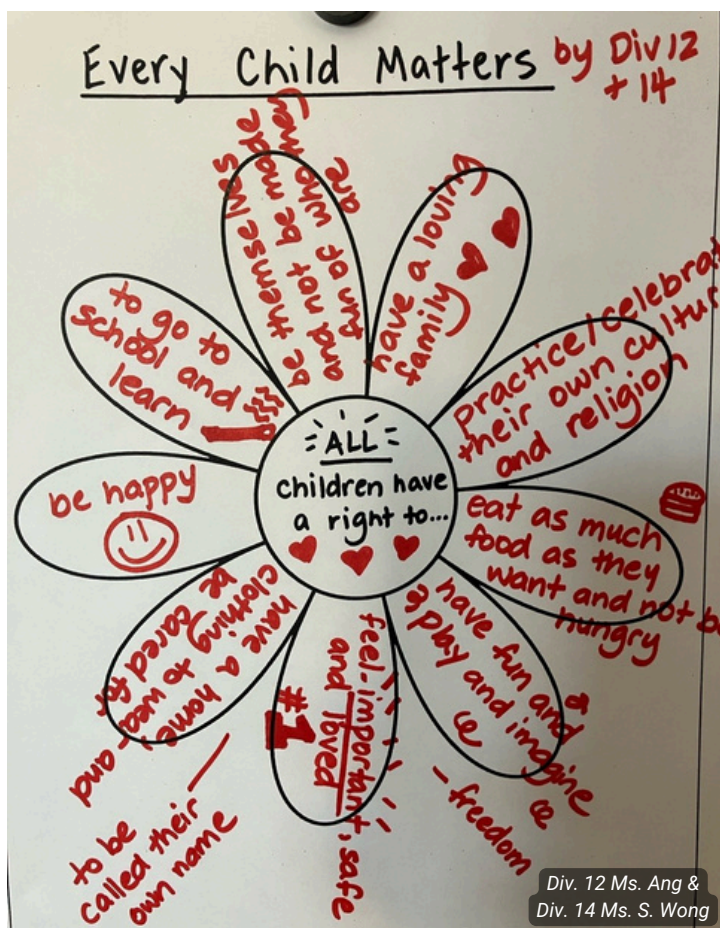 Every Child Matters
by Div 12
+ 14
ALL
children have
a right to...
be themselves
and not be made
fun of who they
are
have a loving
family
practice/celebrat
their own cultur
and religion
eat as much
food as they
want and not be
hungry
have fun and
play and imagine
- freedom
feel important, safe
and loved
#1
have a home,
clothing to wear and
be cared for
to be
called their
own name
be happy
to go to
school and
learn
Div. 12 Ms. Ang &
Div. 14 Ms. S. Wong